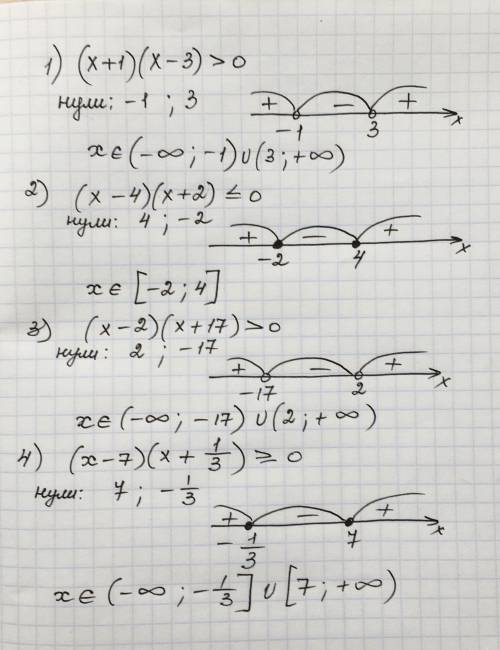 1) (x+1)(x-3) > 0
нули: -1 ; 3
+ - +
-1 3 x
x ∈ (-∞ ; -1) ∪ (3 ; +∞)
2) (x-4)(x+2) ≤ 0
нули: 4 ; -2
+ - +
-2 4 x
x ∈ [-2 ; 4]
3) (x-2)(x+17) > 0
нули: 2 ; -17
+ - +
-17 2 x
x ∈ (-∞ ; -17) ∪ (2 ; +∞)
4) (x-7)(x + 1/3) ≥ 0
нули: 7 ; -1/3
+ - +
-1/3 7 x
x ∈ (-∞ ; -1/3] ∪ [7 ; +∞)